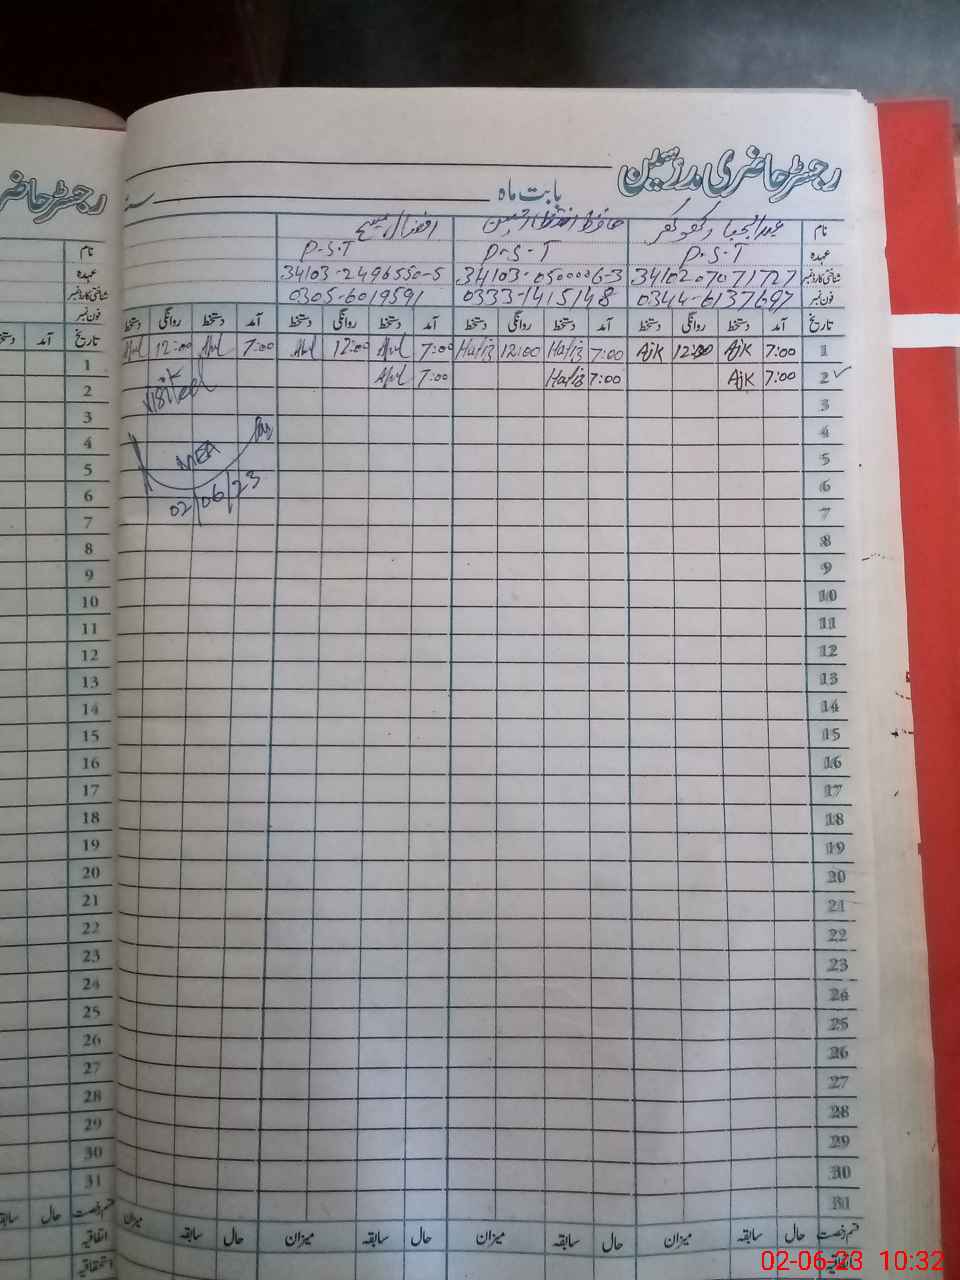 رجسٹر حاضری مدرسین
بابت ماہ سنہ
نام عبدالجبار کھوکھر حافظ افضال مسیح
عہدہ P.S.T P.S.T P.S.T
شناختی کارڈ نمبر 34102-0707172-7 34103-0500006-3 34103-2496550-5
فون نمبر 0344-6137697 0333-1415148 0305-6019591
تاریخ آمد دستخط روانگی دستخط آمد دستخط روانگی دستخط آمد دستخط روانگی دستخط آمد دستخط روانگی دستخط
1 7:00 AJK 12:00 AJK 7:00 Hafiz 12:00 Hafiz 7:00 12:00 7:00 12:00
2 7:00 AJK 7:00 Hafiz 7:00
Visited
3
4
MEA
5
6
02/06/23
7
8
9
10
11
12
13
14
15
16
17
18
19
20
21
22
23
24
25
26
27
28
29
30
31
قسم رخصت حال سابقہ میزان حال سابقہ میزان حال سابقہ میزان حال سابقہ میزان
اتفاقیہ
رجسٹر حاضر
نام
عہدہ
شناختی کارڈ نمبر
فون نمبر
تاریخ آمد
1
2
3
4
5
6
7
8
9
10
11
12
13
14
15
16
17
18
19
20
21
22
23
24
25
26
27
28
29
30
31
قسم رخصت حال سابقہ
اتفاقیہ
استحقاقیہ
02-06-23 10:32